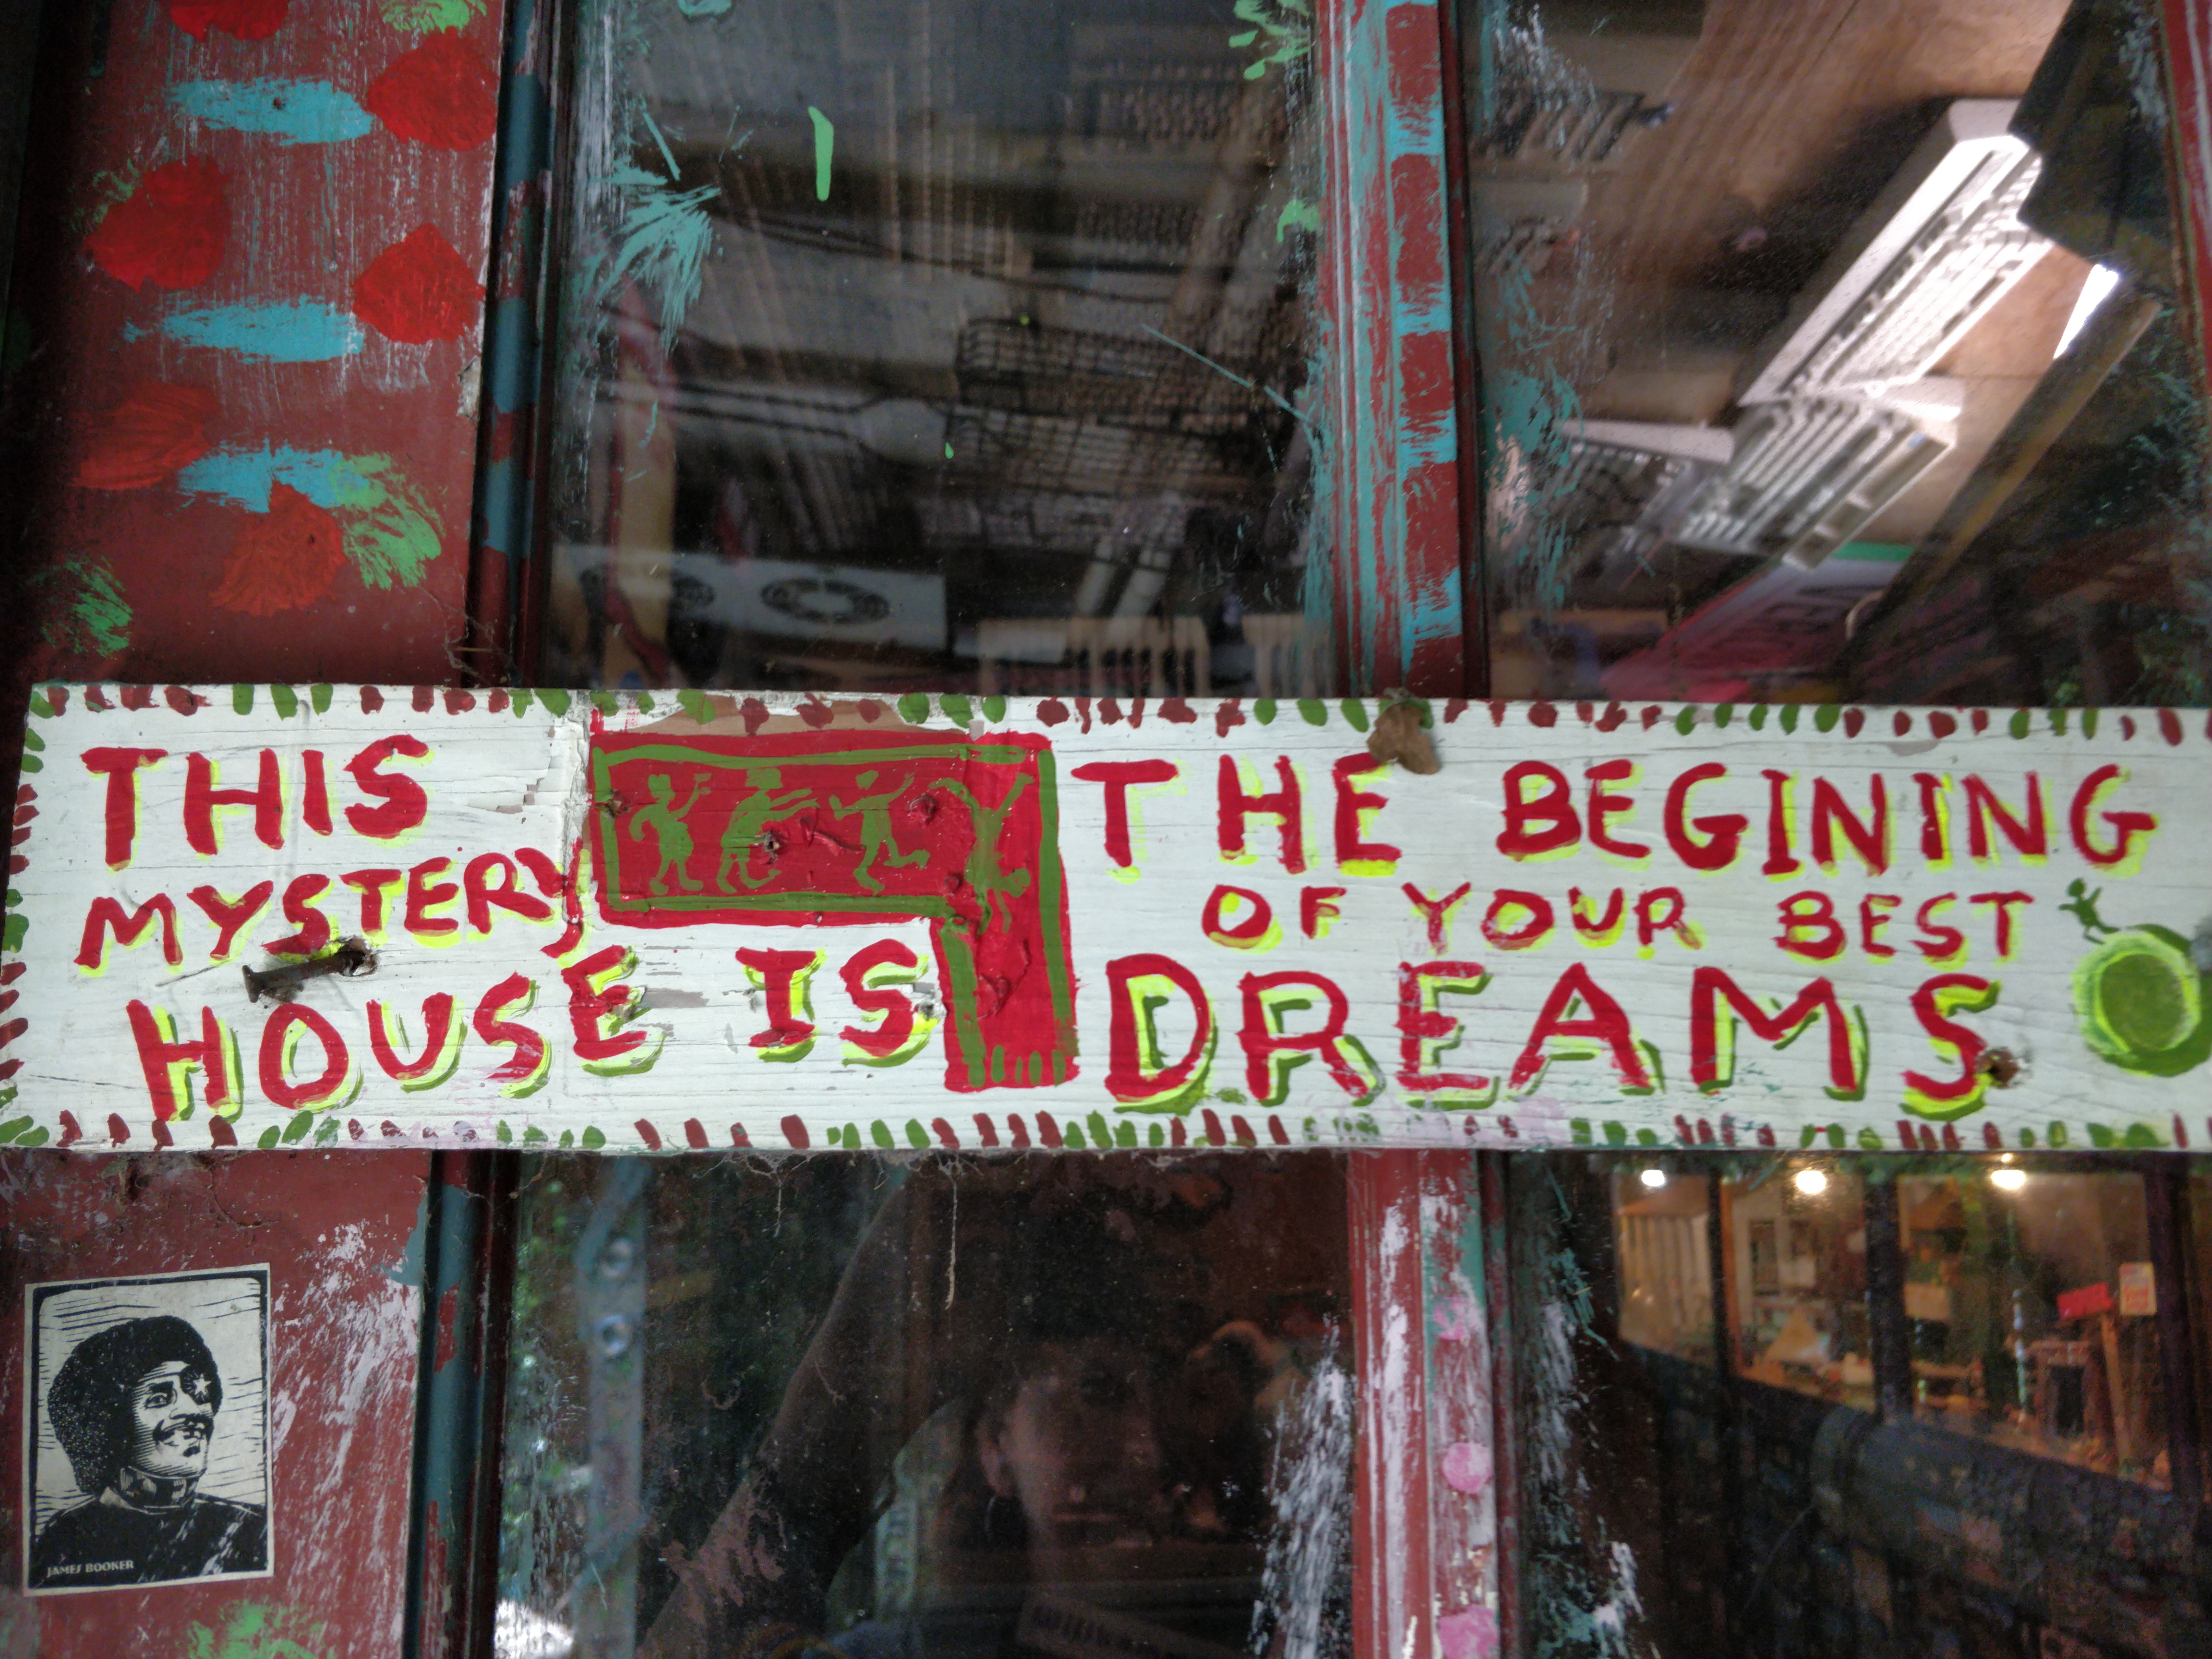 THIS
MYSTERY
HOUSE IS
THE BEGINING
OF YOUR BEST
DREAMS
JAMES BOOKER